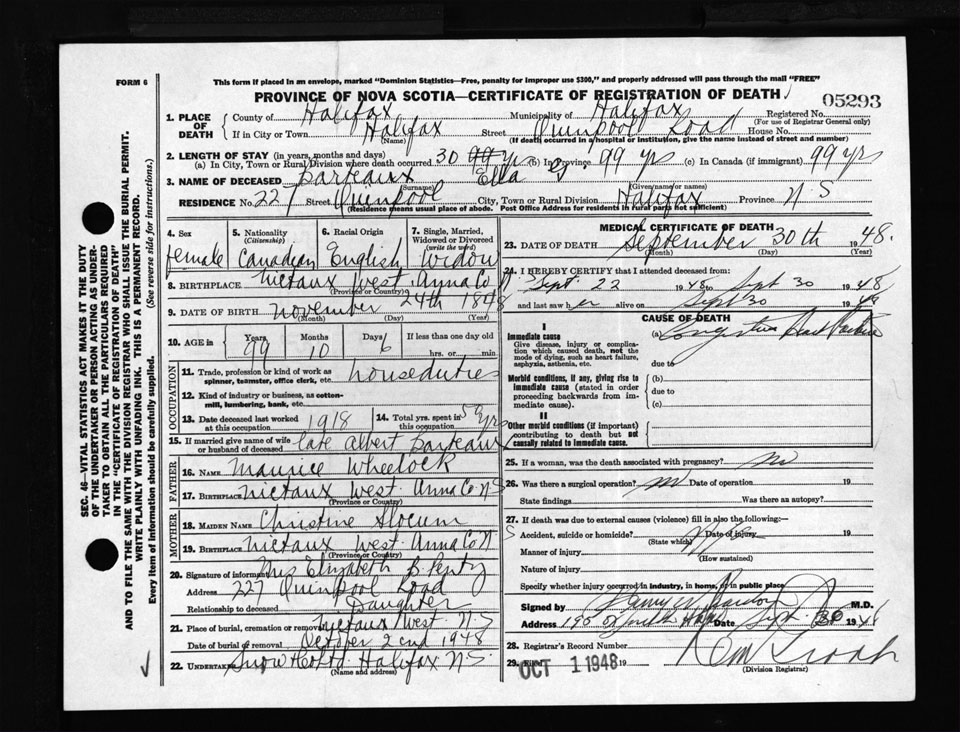 FORM 6
This form if placed in an envelope, marked "Dominion Statistics—Free, penalty for improper use $300," and properly addressed will pass through the mail "FREE"
PROVINCE OF NOVA SCOTIA—CERTIFICATE OF REGISTRATION OF DEATH
05293
SEC. 46—VITAL STATISTICS ACT MAKES IT THE DUTY
OF THE UNDERTAKER OR PERSON ACTING AS UNDER-
TAKER TO OBTAIN ALL THE PARTICULARS REQUIRED
IN THE "CERTIFICATE OF REGISTRATION OF DEATH"
AND TO FILE THE SAME WITH THE DIVISION REGISTRAR WHO SHALL ISSUE THE BURIAL PERMIT.
WRITE PLAINLY WITH UNFADING INK. THIS IS A PERMANENT RECORD.
Every item of information should be carefully supplied. (See reverse side for instructions.)
1. PLACE OF DEATH
County of Halifax Municipality of Halifax Registered No.
(For use of Registrar General only)
If in City or Town Halifax Street Quinpool Road House No.
(Name) (If death occurred in a hospital or institution, give its name instead of street and number)
2. LENGTH OF STAY (in years, months and days)
(a) In City, Town or Rural Division where death occurred 30 yrs (b) In Province 99 yrs (c) In Canada (if immigrant) 99 yrs
3. NAME OF DECEASED Barteaux Ella J.
(Surname) (Given name or names)
RESIDENCE No. 227 Street Quinpool City, Town or Rural Division Halifax Province N S
(Residence means usual place of abode. Post Office Address for residents in rural parts not sufficient)
4. Sex
female
5. Nationality
(Citizenship)
Canadian
6. Racial Origin
English
7. Single, Married,
Widowed or Divorced
(write the word)
Widow
8. BIRTHPLACE Nictaux West Anna Co N.S
(Province or Country)
9. DATE OF BIRTH November 24th 1848
(Month) (Day) (Year)
10. AGE in
Years Months Days If less than one day
99 10 6 hrs. or min.
OCCUPATION
11. Trade, profession or kind of work as
spinner, teamster, office clerk, etc. houseduties
12. Kind of industry or business, as cotton-
mill, lumbering, bank, etc.
13. Date deceased last worked
at this occupation 1918
14. Total yrs. spent in
this occupation 50 yrs
15. If married give name of wife
or husband of deceased late Albert Barteaux
FATHER
16. NAME Maurice Wheelock
17. BIRTHPLACE Nictaux West Anna Co N S
(Province or Country)
MOTHER
18. MAIDEN NAME Christine Slocum
19. BIRTHPLACE Nictaux West Anna Co N S
(Province or Country)
20. Signature of informant Mrs Elizabeth B. Fenty
Address 227 Quinpool Road
Relationship to deceased Daughter
21. Place of burial, cremation or removal Nictaux West N.S
Date of burial or removal October 2nd 1948
22. UNDERTAKER Snow & Co Ltd Halifax N.S.
(Name and address)
MEDICAL CERTIFICATE OF DEATH
23. DATE OF DEATH September 30th 1948.
(Month) (Day) (Year)
24. I HEREBY CERTIFY that I attended deceased from:
Sept. 22 1948 to Sept 30 1948
and last saw her alive on Sept 30 1948
CAUSE OF DEATH
I
Immediate cause
Give disease, injury or complica-
tion which caused death, not the
mode of dying, such as heart failure,
asphyxia, asthenia, etc.
(a) Congestive Heart Failure
due to
Morbid conditions, if any, giving rise to
immediate cause (stated in order
proceeding backwards from im-
mediate cause).
(b)
due to
(c)
II
Other morbid conditions (if important)
contributing to death but not
causally related to immediate cause.
25. If a woman, was the death associated with pregnancy? no
26. Was there a surgical operation? no Date of operation 19
State findings Was there an autopsy?
27. If death was due to external causes (violence) fill in also the following:—
Accident, suicide or homicide? Date of injury 19
(State which)
Manner of injury
(How sustained)
Nature of injury
Specify whether injury occurred in industry, in home, or in public place
Signed by M.D.
Address 195 Date Sept 30 1948
28. Registrar's Record Number
29. Filed OCT 1 1948 19
(Division Registrar)